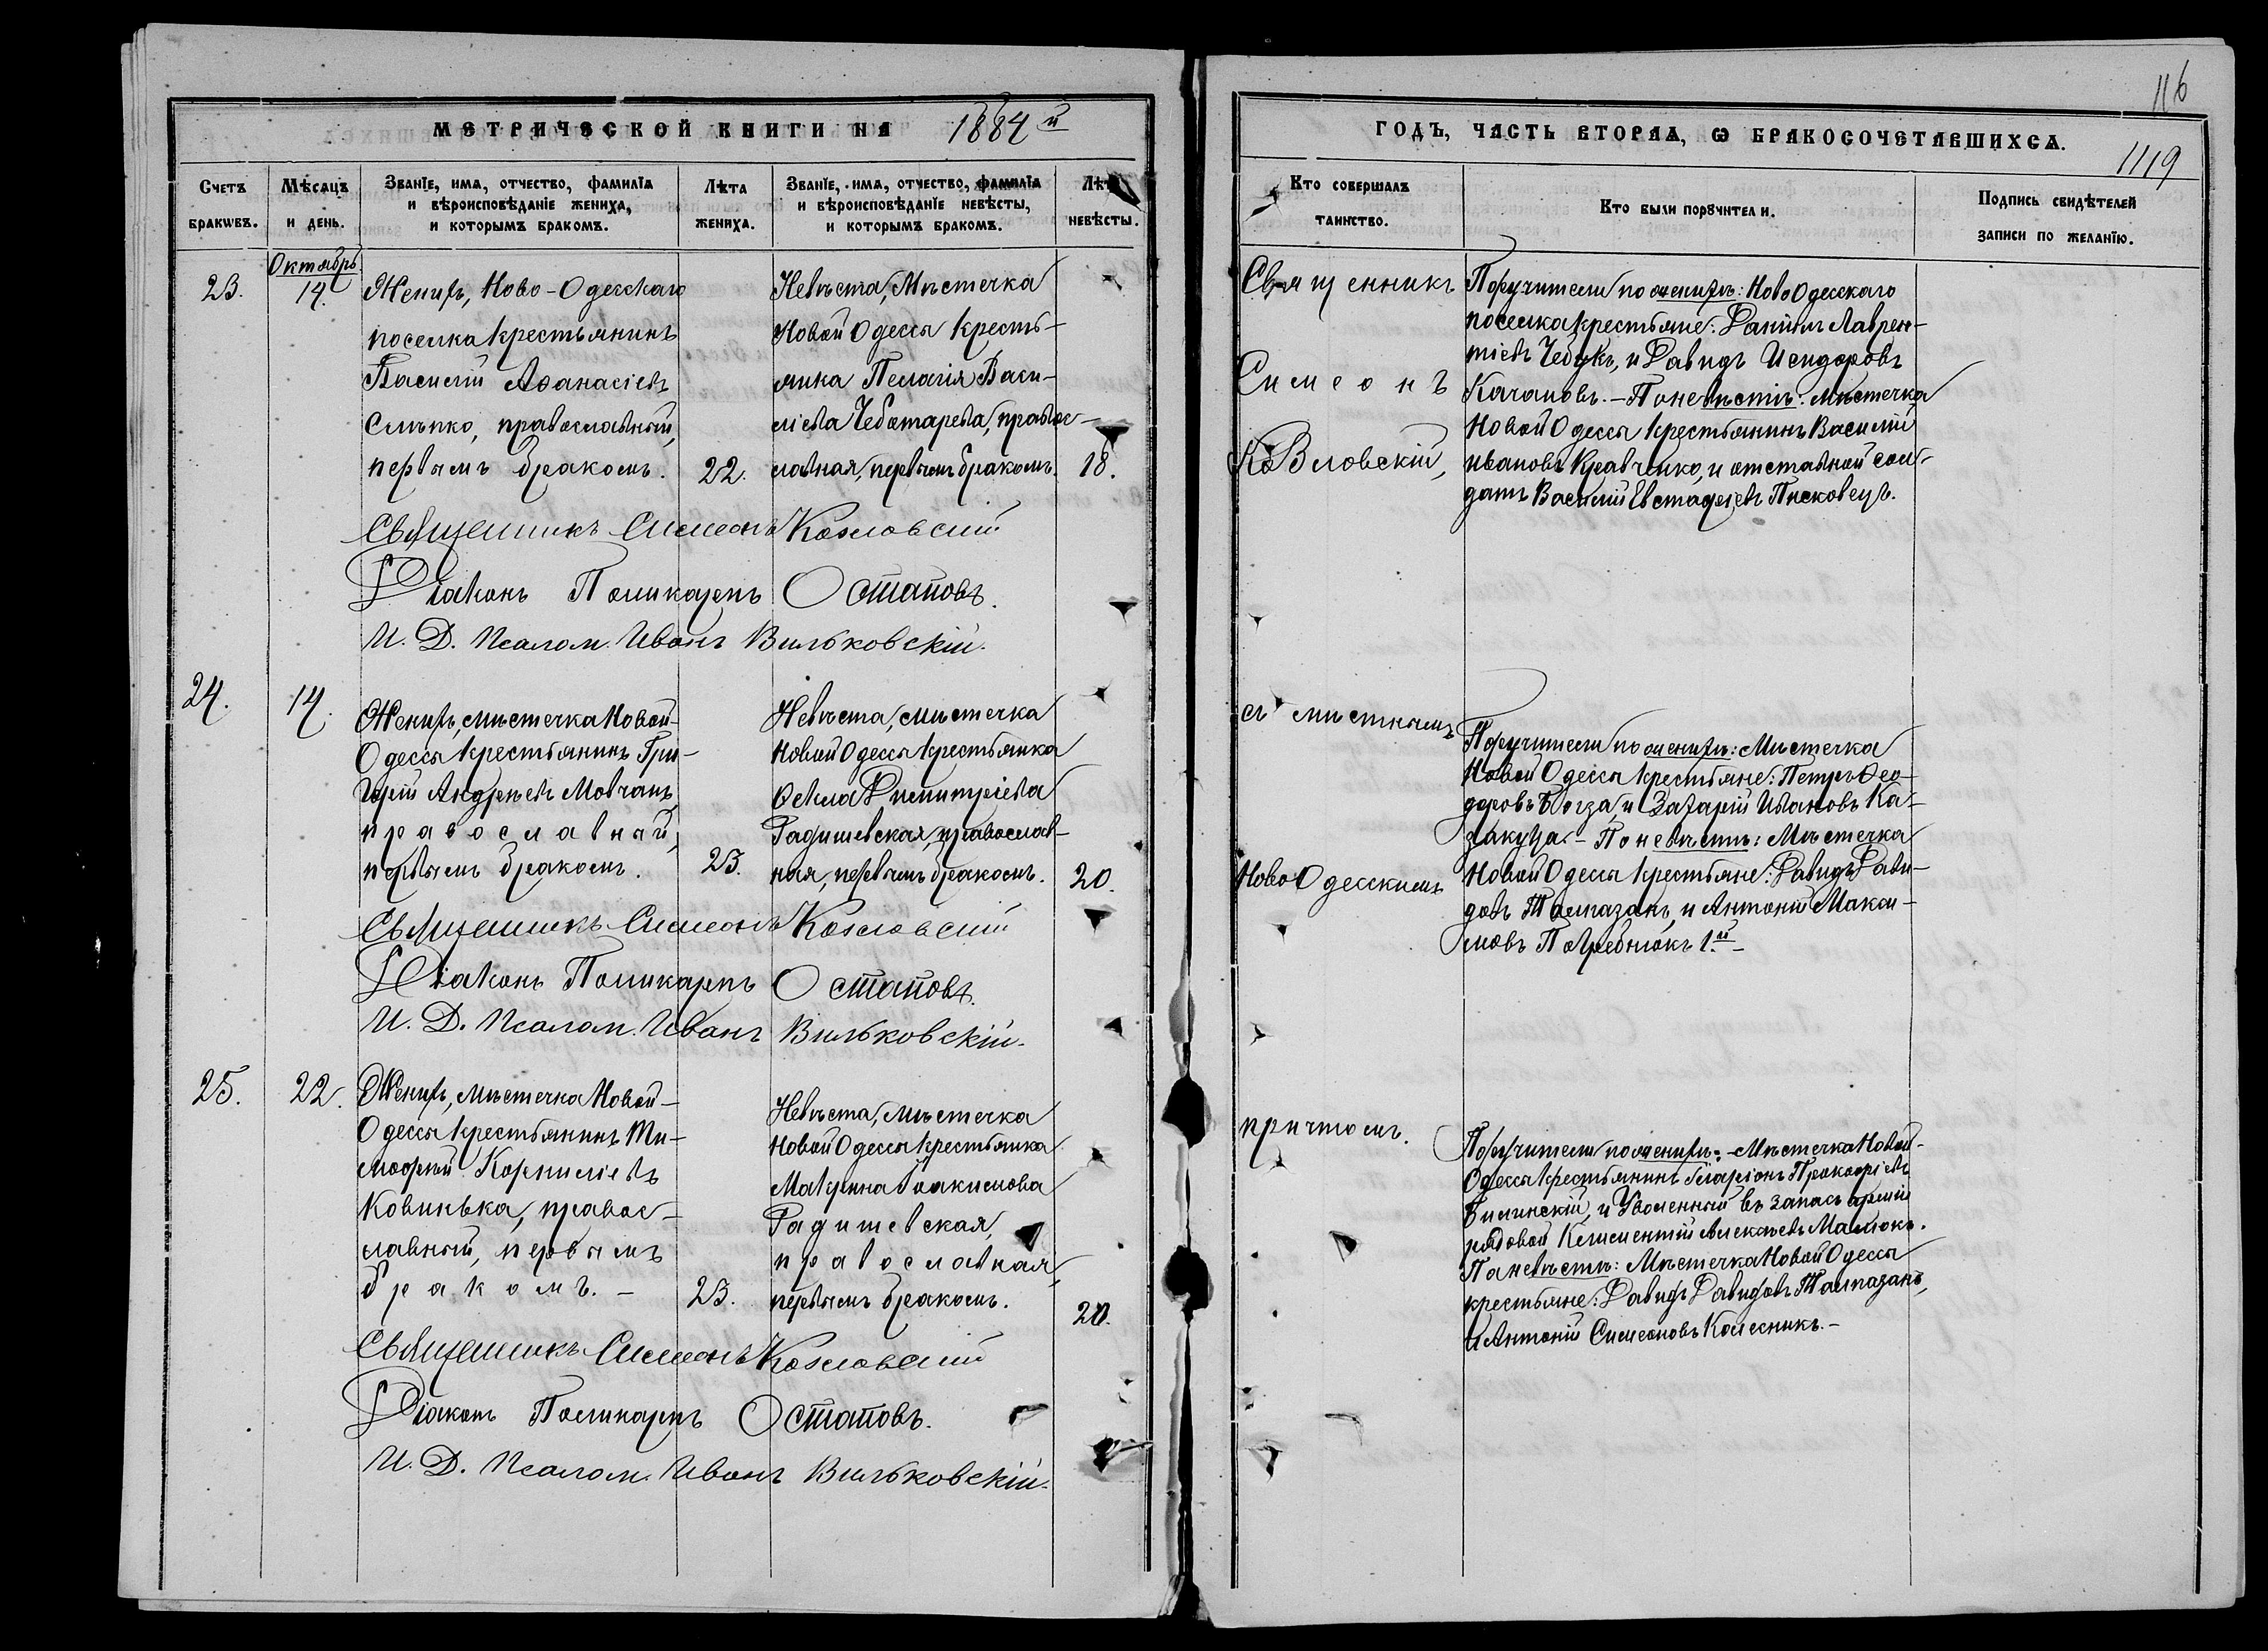 МЕТРИЧЕСКОЙ КНИГИ НА 1884й
Счетъ браковъ.
Мѣсяцъ и день.
Званіе, имя, отчество, фамилія и вѣроисповѣданіе жениха, и которымъ бракомъ.
Лѣта жениха.
Званіе, имя, отчество, фамилія и вѣроисповѣданіе невѣсты, и которымъ бракомъ.
Лѣта невѣсты.
Октябрь
23.
14.
Женихъ, Ново-Одесскаго
поселка крестьянинъ
Василій Аѳанасіевъ
Слѣпко, православный,
первымъ бракомъ.
22.
Невѣста, Мѣстечка
Новой Одессы кресть-
янка Пелагія Васи-
ліева Чеботарева, правос-
лавная, первымъ бракомъ.
18.
Священникъ Симеонъ Козловскій
Діаконъ Поликарпъ Остаповъ.
И. Д. Псалом. Иванъ Вильковскій.
24.
14.
Женихъ, мѣстечка Новой-
Одессы крестьянинъ Гри-
горій Андреевъ Мовчанъ,
православный,
первымъ бракомъ.
23.
Невѣста, мѣстечка
Новой Одессы крестьянка
Ѳекла Димитріева
Гадишевская, православ-
ная, первымъ бракомъ.
20.
Священникъ Симеонъ Козловскій
Діаконъ Поликарпъ Остаповъ.
И. Д. Псалом. Иванъ Вильковскій.
25.
22.
Женихъ, мѣстечка Новой-
Одессы крестьянинъ Ти-
моѳей Корниліевъ
Ковинька, правос-
лавный, первымъ
бракомъ. -
23.
Невѣста, мѣстечка
Новой Одессы крестьянка
Макрина Іоакимова
Гадишевская,
православная,
первымъ бракомъ.
20.
Священникъ Симеонъ Козловскій
Діаконъ Поликарпъ Остаповъ.
И. Д. Псалом. Иванъ Вильковскій.
116
ГОДЪ, ЧАСТЬ ВТОРАЯ, Ѡ БРАКОСОЧЕТАВШИХСЯ.
1119
Кто совершалъ таинство.
Кто были поручители.
Подпись свидѣтелей записи по желанію.
Священникъ
Симеонъ
Козловскій,
Поручители по женихѣ: Ново Одесскаго
поселка крестьяне: Даніилъ Лаврен-
тіевъ Чебукъ, и Давидъ Исидоровъ
Качановъ. - По невѣстѣ: мѣстечка
Новой Одессы крестьянинъ Василій
Ивановъ Кравченко, и отставной сол-
датъ Василій Евстафіевъ Писковецъ.
съ мѣстнымъ
Ново Одесскимъ
Поручители по женихѣ: Мѣстечка
Новой Одессы крестьяне: Петръ Ѳео-
доровъ Богза, и Захарій Ивановъ Ка-
закуца. - По невѣстѣ: Мѣстечка
Новой Одессы крестьяне: Давидъ Дави-
довъ Талмазанъ, и Антоній Макси-
мовъ Погребнюкъ 1.й -
причтомъ.
Поручители по женихѣ: - Мѣстечка Новой-
Одессы крестьянинъ Иларіонъ Прокофіевъ
Билинскій, и Уволенный въ запасъ арміи
рядовой Климентій Алексѣевъ Малюкъ.
По невѣстѣ: Мѣстечка Новой Одессы
крестьяне: Давидъ Давидовъ Талмазанъ,
и Антоній Симеоновъ Колесникъ. -